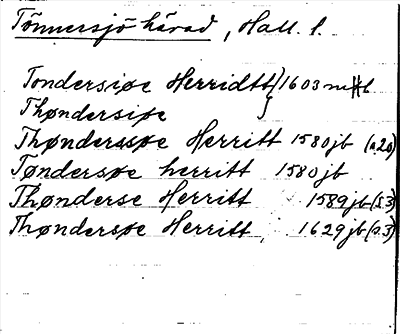 Tönnersjö härad, Hall. l.
Tondersiøe Herridtt } 1603
Thøndersiøe
Thønderssøe Herritt 1580 jb (a.20)
Tøndersøe herritt 1580 jb
Thønderse Herritt 1589 jb (s.3)
Thøndersøe Herritt 1629 jb (a.3)